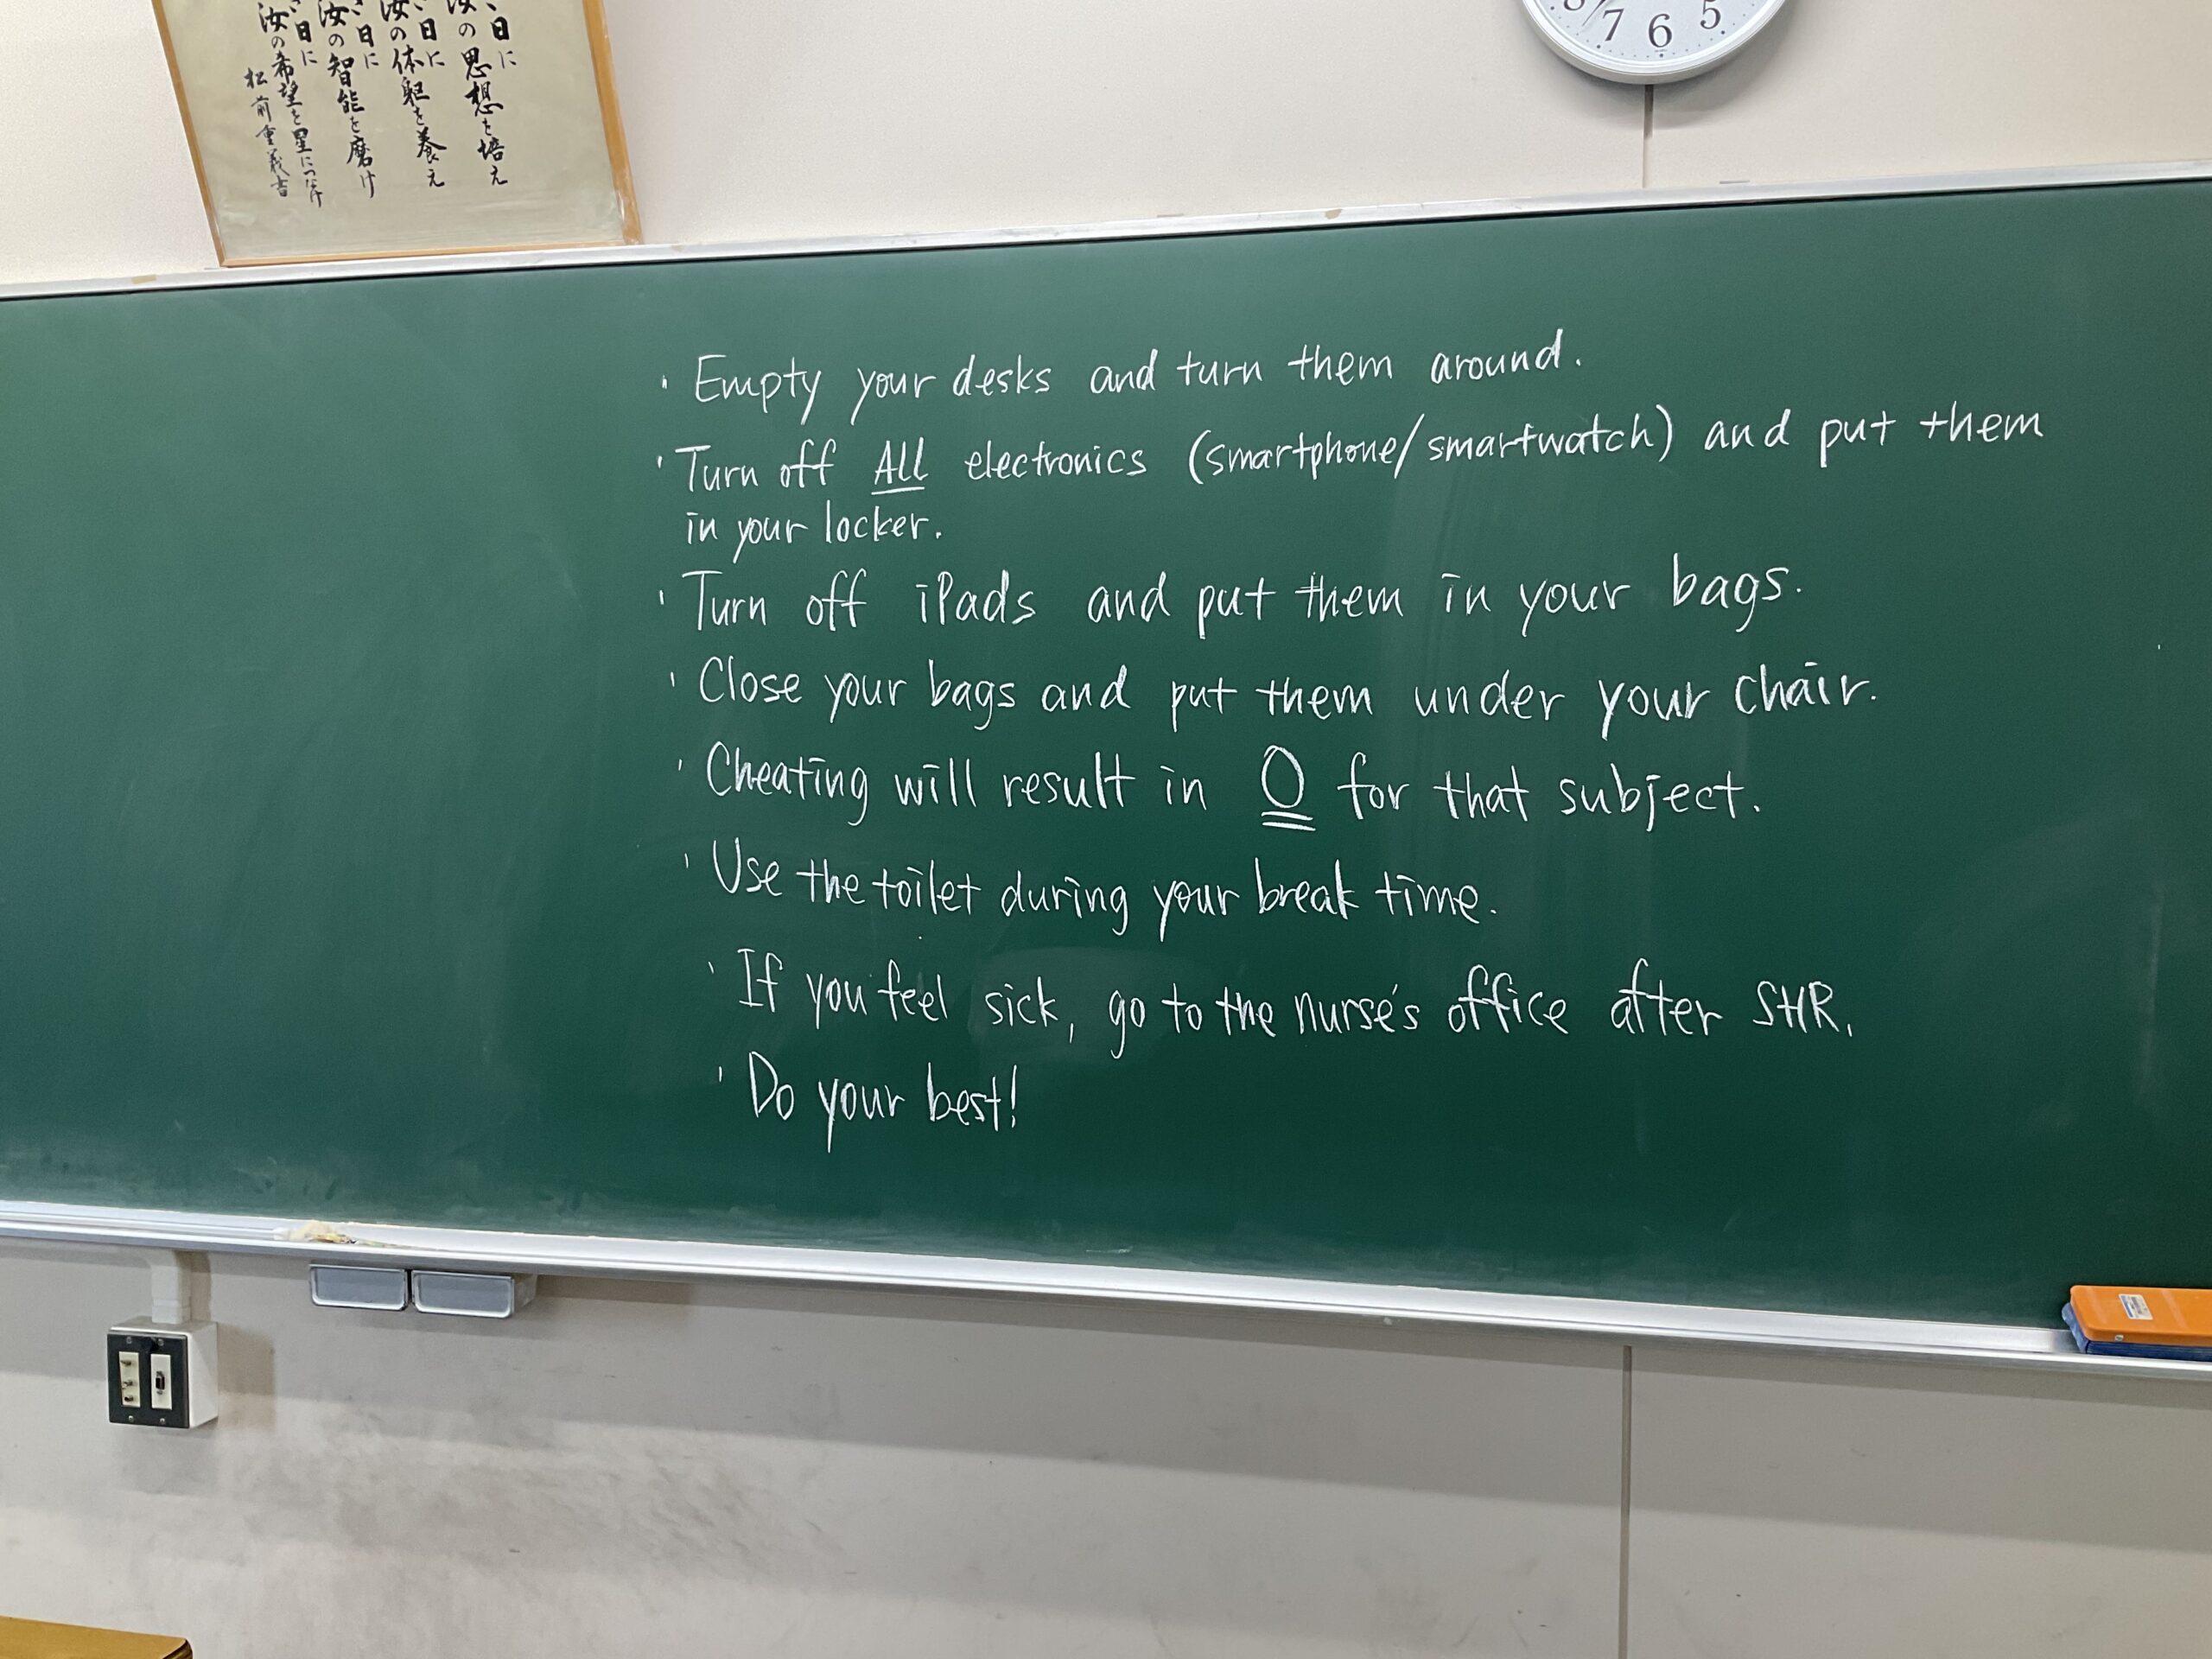 日に
汝の思想を培え
日に
汝の体躯を養え
日に
汝の智能を磨け
日に
汝の希望を星につなげ
松前重義書
8 7 6 5
· Empty your desks and turn them around.
· Turn off ALL electronics (smartphone/smartwatch) and put them
in your locker.
· Turn off iPads and put them in your bags.
· Close your bags and put them under your chair.
· Cheating will result in 0 for that subject.
· Use the toilet during your break time.
· If you feel sick, go to the nurse's office after SHR.
· Do your best!